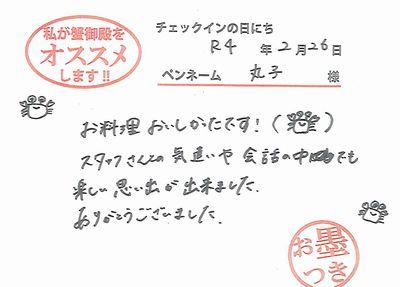 私が蟹御殿を
オススメ
します!!
チェックインの日にち
R4 年 2月 26日
ペンネーム 丸子 様
お料理 おいしかたです!
スタッフさんとの気遣いや 会話の中でも
楽しい思い出が出来ました.
ありがとうございました.
お墨
つき